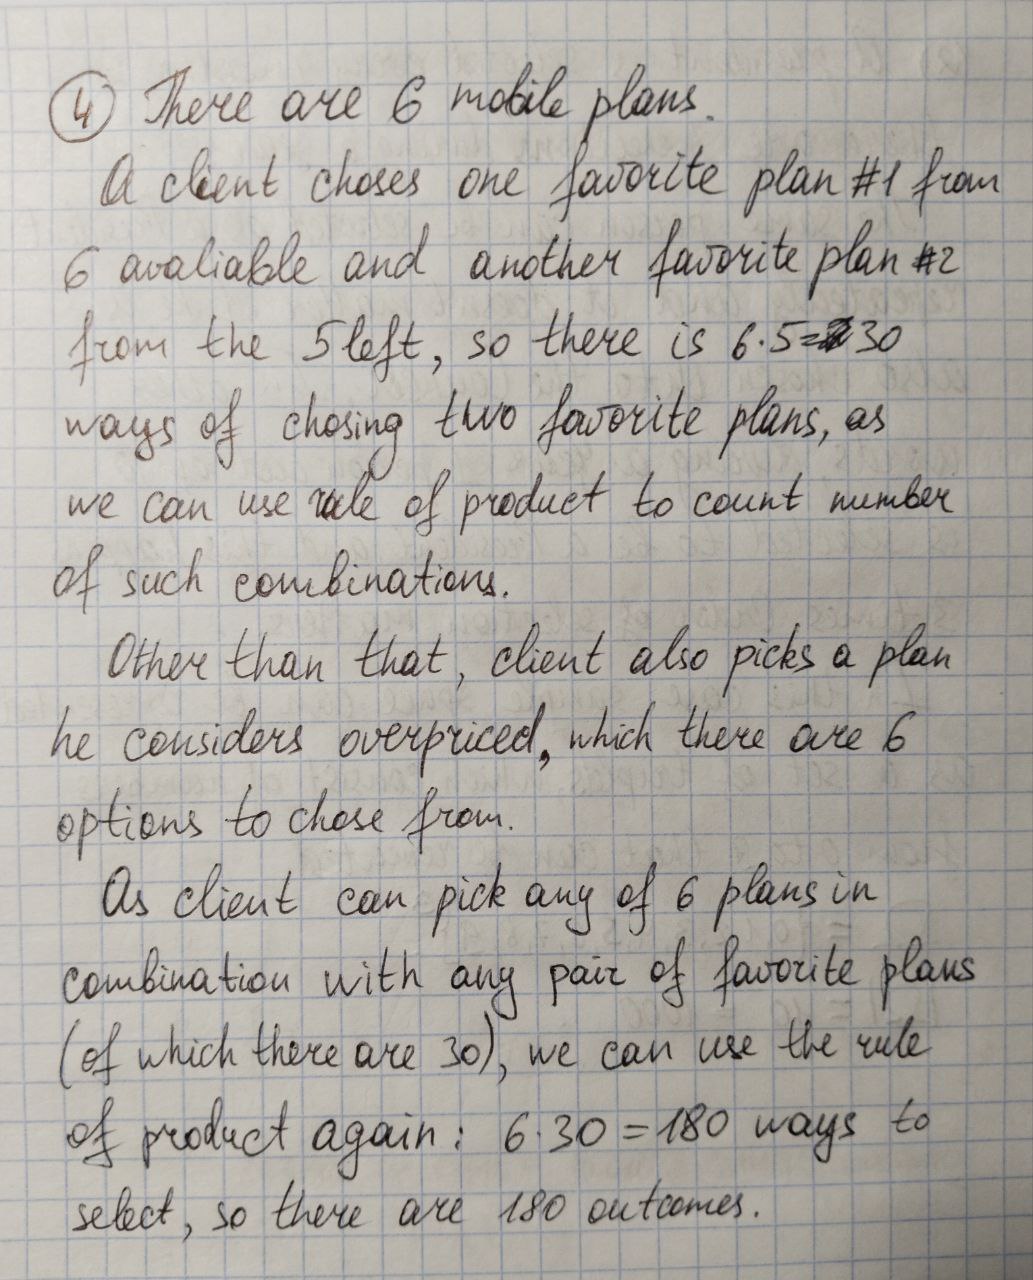 4 There are 6 mobile plans.
A client choses one favorite plan #1 from
6 avaliable and another favorite plan #2
from the 5 left, so there is 6·5=30
ways of chosing two favorite plans, as
we can use rule of product to count number
of such combinations.
Other than that, client also picks a plan
he considers overpriced, which there are 6
options to chose from.
As client can pick any of 6 plans in
combination with any pair of favorite plans
(of which there are 30), we can use the rule
of product again: 6·30=180 ways to
select, so there are 180 outcomes.